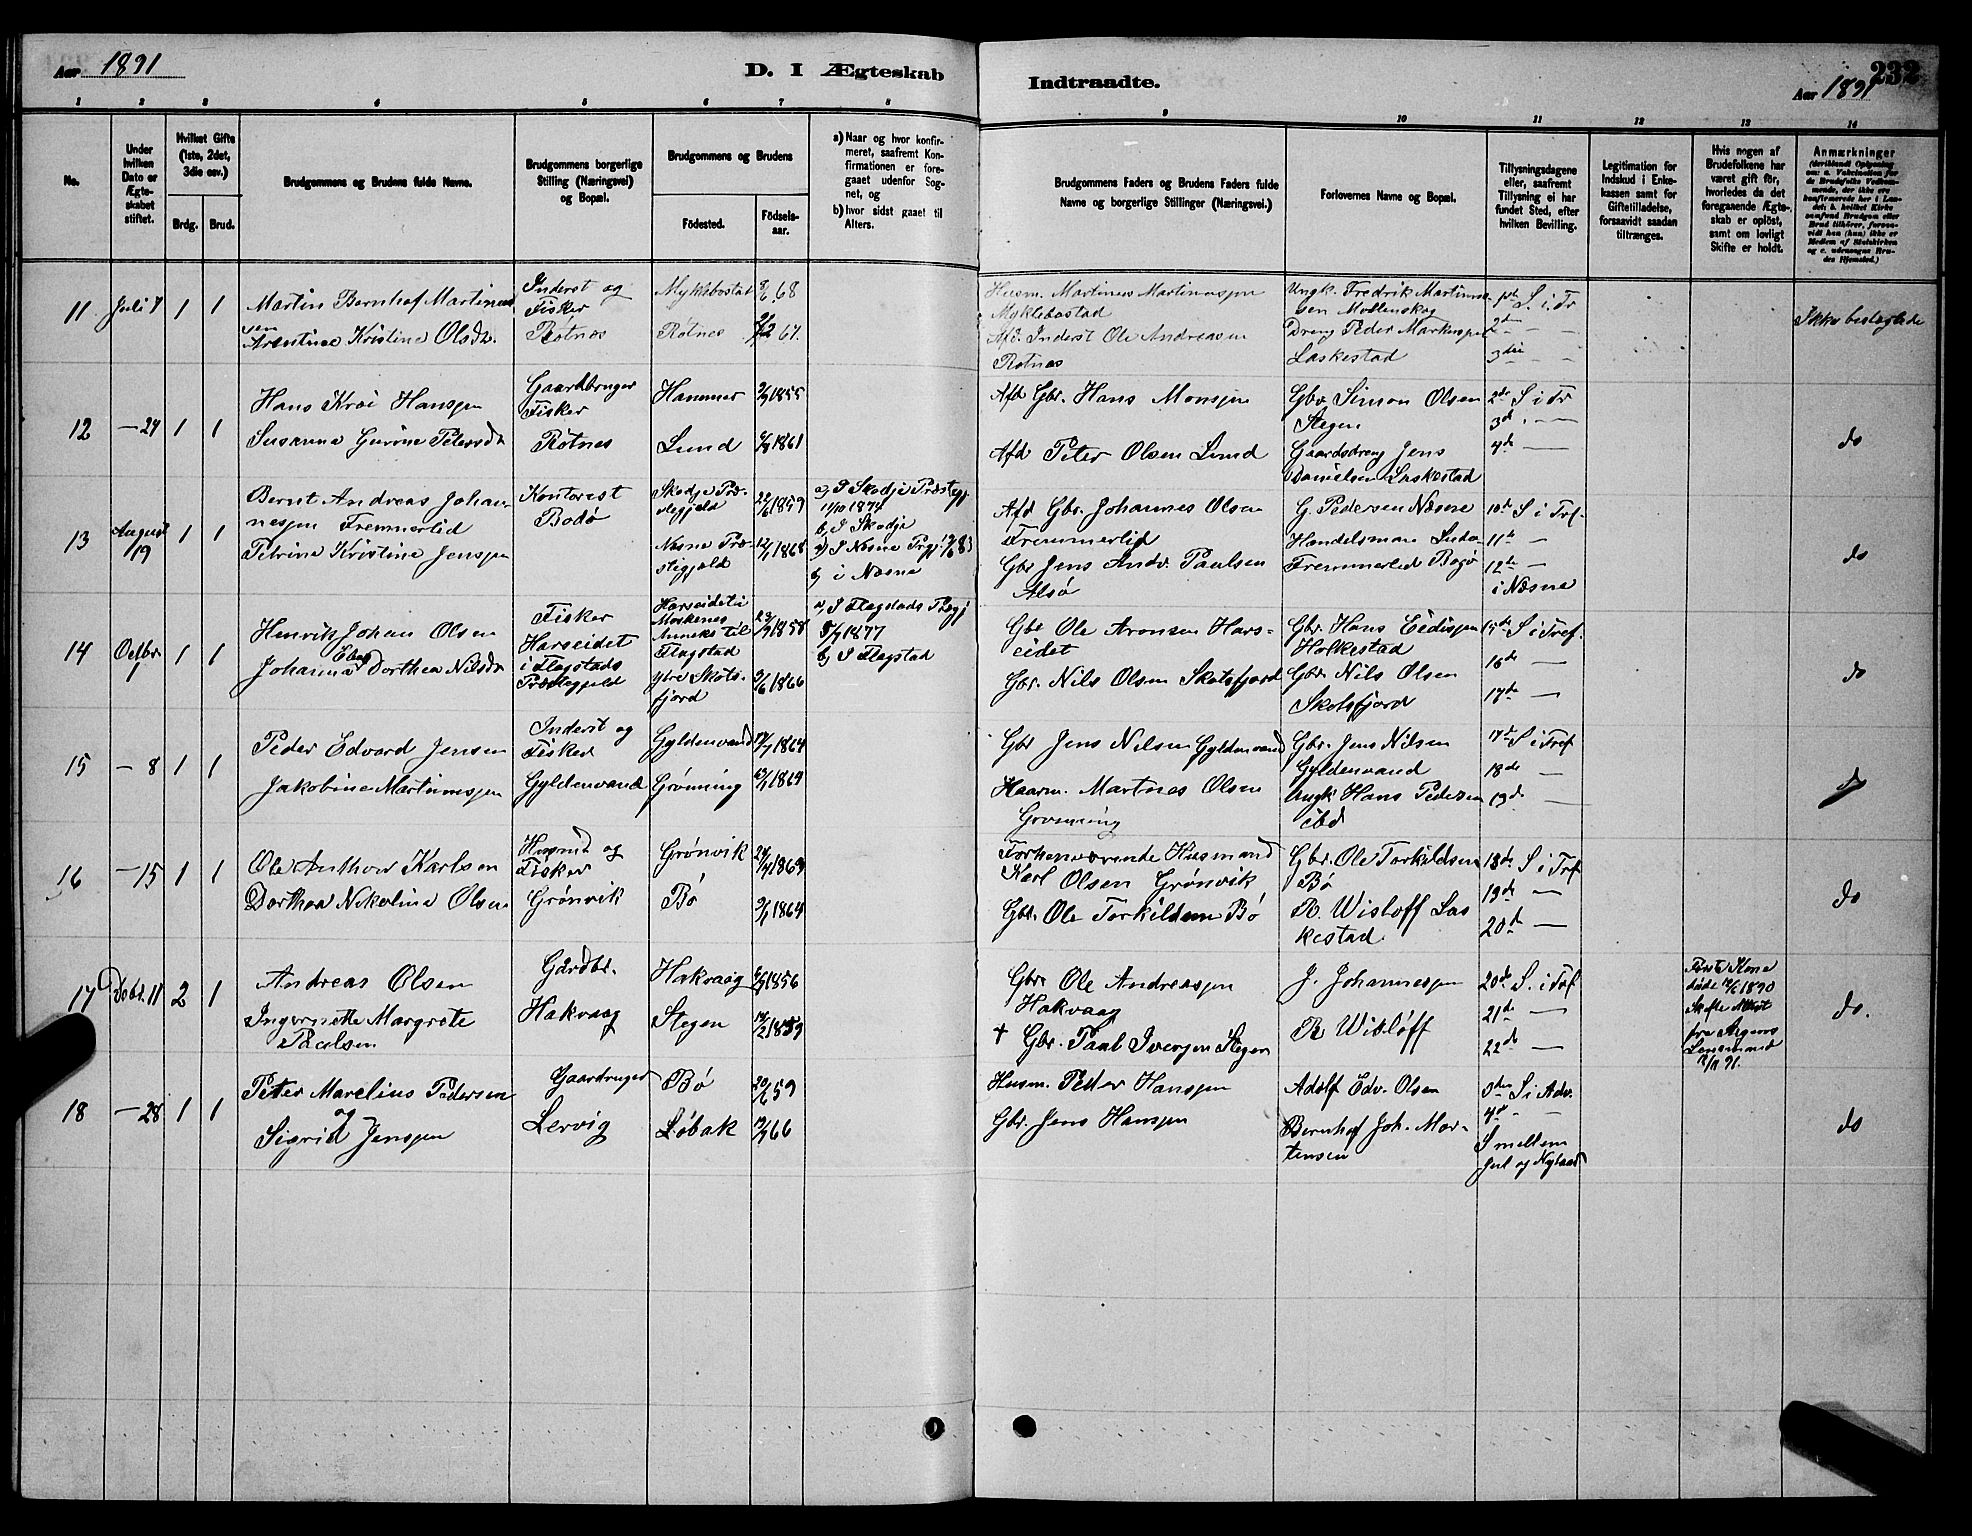 Aar 1891
D. I Ægteskab
Indtraadte.
232
Aar 1891
1 2 3 4 5 6 7 8 9 10 11 12 13 14
No.
Under
hvilken
Dato er
Ægte-
skabet
stiftet.
Hvilket Gifte
(1ste, 2det,
3die osv.)
Brdg. Brud.
Brudgommens og Brudens fulde Navne.
Brudgommens borgerlige
Stilling (Næringsvei)
og Bopæl.
Brudgommens og Brudens
Fødested.
Fødsels-
aar.
a) Naar og hvor konfir-
meret, saafremt Kon-
firmationen er fore-
gaaet udenfor Sog-
net, og
b) hvor sidst gaaet til
Alters.
Brudgommens Faders og Brudens Faders fulde
Navne og borgerlige Stillinger (Næringsvei.)
Forlovernes Navne og Bopæl.
Tillysningsdagene
eller, saafremt
Tillysning ei har
fundet Sted, efter
hvilken Bevilling.
Legitimation for
Indskud i Enke-
kassen samt for
Giftetilladelse,
forsaavidt saadan
tiltrænges.
Hvis nogen af
Brudefolkene har
været gift før,
hvorledes da det
foregaaende Ægte-
skab er opløst,
samt om lovligt
Skifte er holdt.
Anmærkninger
11 Juli 7 1 1
Martin Bernhof Martines
sen
Arentine Kristine Olsdr.
Inderst og
Fisker
Røtnes
Myklebostad 68
Røtnes 67.
Husm. Martines Martinussen
Myklebostad
Afd. Inderst Ole Andreasen
Røtnes
Ungk. Fredrik Martinus
sen
Dreng Peder Markussen
Laskestad
1ste S. i Tr
2den — —
3die — —
Ikke beslægtede
12 — 24 1 1
Hans Kroi Hansen
Susanna Gurine Petersdr
Gaardbruger
Fisker
Røtnes
Hammer 1855
Lund 1861
Afd Gbr. Hans Monsen
Afd Peter Olsen Lund
Gbr Simon Olsen
Stegen
Gaardsdreng Jens
Danielsen Laskestad
2de S i Tr
3d — —
4de —
do
13 August 19 1 1
Bernt Andreas Johan-
nesen Fremmerlid
Petrine Kristine Jensen
Kontorist
Bodø
Skodje Præ-
stegjeld 1859
Nesna Præ-
stegjæld 1868
a) I Skodje Præstegj
11/10 1874
b) I Skodje
a) I Nesna Prgj.
b) i Næsna
Afd Gbr. Johannes Olsen
Fremmerlid
Gbr Jens Andr. Paulsen
Alsø
G. Pedersen Næsne
Handelsmand
Fremmerlid
i Næsne
10de S i Tref.
11te —
12te —
do
14 Octbr 1 1 1
Henrik Johan Olsen
Johanna Dorthea Nilsdr
Fisker
Harseidet
i Flagstads
Præstegjeld
Harseidet i
Moskenes
Anneks til
Flagstad 1858
ytre Skots-
fjord 1866
a) I Flagstads Prgj
1877
b) I Flagstad
Gbr Ole Aronsen Hars-
eidet
Gbr. Nils Olsen Skotsfjord
Gbr. Hans Eidissen
Holkestad
Gbr. Nils Olsen
Skotsfjord
15de S i Tref.
16de —
17de —
do
15 — 8 1 1
Peder Edvard Jensen
Jakobine Martinessen
Inderst og
Fisker
Gyldenvand
Gyldenvand 1864
Grønning 1869
Gbr Jens Nilsen Gyldenvand
Haarm. Martnes Olsen
Grønning
Gbr. Jens Nilsen
Gyldenvand
Ungk Hans Pedersen
ibd
17de S i Tref
18de —
19de —
do
16 — 15 1 1
Ole Anthon Karlsen
Dorthea Nikoline Olsen
Husmd og
Fisker
Grønvik
Grønvik 1869
Bø 1864
Forhenværende Husmand
Karl Olsen Grønvik
Gbr. Ole Torkildsen Bø
Gbr. Ole Torkildsen
Bø
R. Wisløff Las
kestad
18de S i Tref
19de —
20de —
do
17 Decbr. 11 2 1
Andreas Olsen
Ingernette Margrete
Paulsen
Gårdbr.
Hakvaag
Hakvaag 1856
Stegen 1859
Gbr Ole Andreassen
Hakvaag
+ Gbr. Paul Iversen Stegen
J. Johannessen
R Wisløff
20de S. i Tref
21de —
22de —
Første Kone
døde 1890
Skifte Attest
fra
Lensmand
91.
do.
18 — 28 1 1
Peter Marelius Pedersen
og
Sigrid Jensen
Gaardbruger
Lervig
Bø 59
Løbak 66
Husm. Peder Hansen
Gbr. Jens Hansen
Adolf Edv. Olsen
Bernhof Joh. Mor-
tensen
3die S i Adv.
4de — —
S mellem
Jul og Nytaar
do